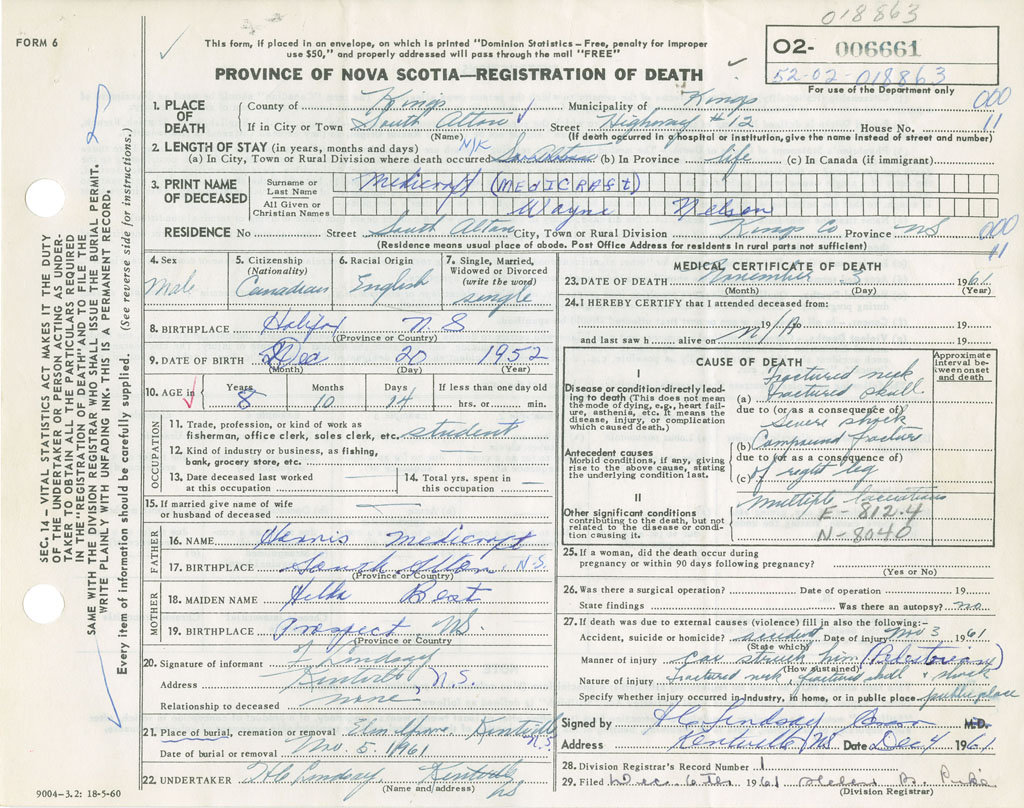 018863
FORM 6
This form, if placed in an envelope, on which is printed "Dominion Statistics – Free, penalty for improper
use $50," and properly addressed will pass through the mail "FREE"
PROVINCE OF NOVA SCOTIA—REGISTRATION OF DEATH
O2- 006661
52-02-018863
For use of the Department only
1. PLACE OF DEATH
County of Kings Municipality of Kings 000
If in City or Town South Alton Street Highway #12 House No. 11
(Name) (If death occurred in a hospital or institution, give the name instead of street and number)
2. LENGTH OF STAY (in years, months and days) N/K
(a) In City, Town or Rural Division where death occurred (b) In Province life (c) In Canada (if immigrant)
3. PRINT NAME OF DECEASED
Surname or Last Name Medicraft (MEDICRAFT)
All Given or Christian Names Wayne Nelson
RESIDENCE No Street South Alton City, Town or Rural Division Kings Co. Province NS 000
(Residence means usual place of abode. Post Office Address for residents in rural parts not sufficient) 11
4. Sex Male
5. Citizenship (Nationality) Canadian
6. Racial Origin English
7. Single, Married, Widowed or Divorced (write the word) single
8. BIRTHPLACE Halifax N.S
(Province or Country)
9. DATE OF BIRTH Dec 20 1952
(Month) (Day) (Year)
10. AGE in Years 8 Months 10 Days 14 If less than one day old hrs. or min.
OCCUPATION
11. Trade, profession, or kind of work as
fisherman, office clerk, sales clerk, etc. student
12. Kind of industry or business, as fishing,
bank, grocery store, etc. —
13. Date deceased last worked
at this occupation —
14. Total yrs. spent in
this occupation —
15. If married give name of wife
or husband of deceased —
FATHER
16. NAME Medicraft
17. BIRTHPLACE South Alton, N.S.
(Province or Country)
MOTHER
18. MAIDEN NAME Hilda Best
19. BIRTHPLACE Prospect NS.
(Province or Country
20. Signature of informant Lindsay
Address Kentville, N.S.
Relationship to deceased none
21. Place of burial, cremation or removal Kentville N.S.
Date of burial or removal Nov. 5. 1961
22. UNDERTAKER Lindsay Kentville
(Name and address) NS
9004–3.2: 18-5-60
MEDICAL CERTIFICATE OF DEATH
23. DATE OF DEATH November 3 1961
(Month) (Day) (Year)
24. I HEREBY CERTIFY that I attended deceased from:
19 N/A 19
and last saw h alive on 19
CAUSE OF DEATH
Approximate interval between onset and death
I
Disease or condition directly leading to death (This does not mean the mode of dying, e.g., heart failure, asthenia, etc. It means the disease, injury, or complication which caused death.)
fractured neck
(a) fractured skull
due to (or as a consequence of)
Severe shock
Antecedent causes
Morbid conditions, if any, giving rise to the above cause, stating the underlying condition last.
(b) Compound fracture
due to (or as a consequence of)
(c) of right leg
II
Other significant conditions
contributing to the death, but not related to the disease or condition causing it.
multiple lacerations
E-812.4
N-8040
25. If a woman, did the death occur during
pregnancy or within 90 days following pregnancy?
(Yes or No)
26. Was there a surgical operation? Date of operation 19
State findings Was there an autopsy? no
27. If death was due to external causes (violence) fill in also the following:
Accident, suicide or homicide? accident Date of injury Nov 3 1961
(State which)
Manner of injury car struck him (Pedestrian)
(How sustained)
Nature of injury fractured neck, fractured skull & shock
Specify whether injury occurred in industry, in home, or in public place public place
Signed by Lindsay M.D.
Address Kentville NS Date Dec 4 1961
28. Division Registrar's Record Number 1
29. Filed Dec. 6th 1961
(Division Registrar)
SEC. 14 – VITAL STATISTICS ACT MAKES IT THE DUTY
OF THE UNDERTAKER OR PERSON ACTING AS UNDER-
TAKER TO OBTAIN ALL THE PARTICULARS REQUIRED
IN THE "REGISTRATION OF DEATH" AND TO FILE THE
SAME WITH THE DIVISION REGISTRAR WHO SHALL ISSUE THE BURIAL PERMIT.
WRITE PLAINLY WITH UNFADING INK. THIS IS A PERMANENT RECORD.
Every item of information should be carefully supplied. (See reverse side for instructions.)